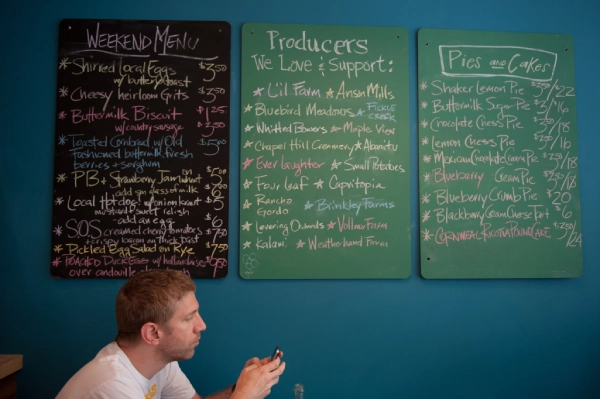 WEEKEND MENU
Shirred Local Eggs
w/ buttery toast
Cheesy heirloom Grits
Buttermilk Biscuit
w/ country sausage
Toasted Cornbread w/ Old
fashioned buttermilk, fresh
berries + Sorghum
PB + Strawberry Jam
add sm glass of milk
Local Hot dog w/ onion
mustard + sweet relish
add an egg
SOS creamed cherry tomatoes
+ crispy bacon on thick toast
Pickled Egg Salad on Rye
POACHED DUCK EGG w/ hollandaise
over andouille
Producers
We Love & Support:
Li'l Farm Anson Mills
Bluebird Meadows FICKLE CREEK
Whitted Bowers Maple View
Chapel Hill Creamery
Ever Laughter Small Potatoes
Four Leaf Capritopia
Rancho Gordo Brinkley Farms
Levering Orchards Vollmer Farm
Kalani Weatherhand Farm
Pies and Cakes
Shaker Lemon Pie 22
Buttermilk Sugar Pie 16
Chocolate Chess Pie 18
Lemon Chess Pie 16
Mexican Chocolate Cream Pie 18
Blueberry Cream Pie
Blueberry Crumb Pie 20
Blackberry Cream Cheese Tart 6
CORNMEAL RICOTTA POUND CAKE 24